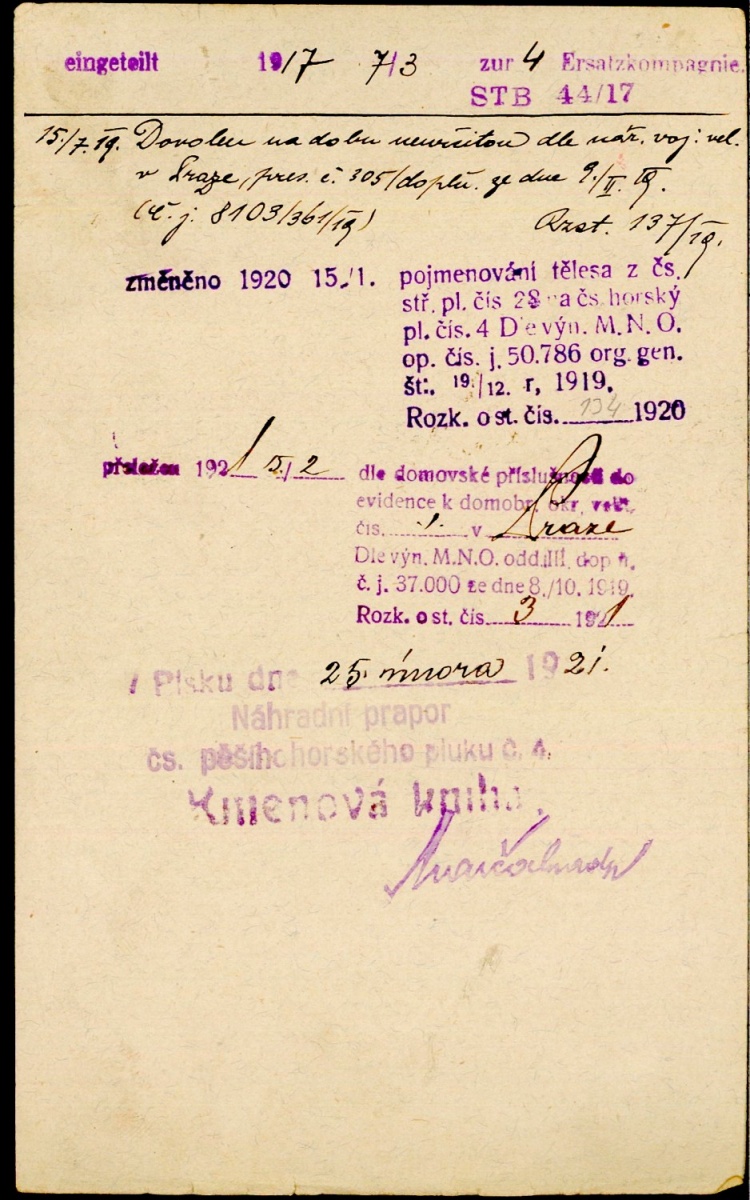 eingeteilt 1917 7/3 zur 4 Ersatzkompagnie.
STB 44/17
15./7. 19. Dovolen na dobu neurčitou dle nář. voj. vel.
v Praze, pres. č. 305/doplň. ze dne 9./II. 19.
(č. j. 8103/361/19) Rzst. 137/19.
změněno 1920 15./1. pojmenování tělesa z čs.
stř. pl. čís 28 na čs. horský
pl. čís. 4 Dle výn. M. N. O.
op. čís. j. 50.786 org. gen.
št. 19./12. r, 1919.
Rozk. o st. čís. 134 1920
přeložen 1921 15./2 dle domovské příslušnosti do
evidence k domobr. okr. velit.
čís. 1. v Praze
Dle výn. M.N.O. odd.III, dopň.
č. j. 37.000 ze dne 8./10. 1919.
Rozk. o st. čís. 3 1921
V Písku dne 25. února 1921.
Náhradní prapor
čs. pěšího horského pluku č. 4.
Kmenová kniha.